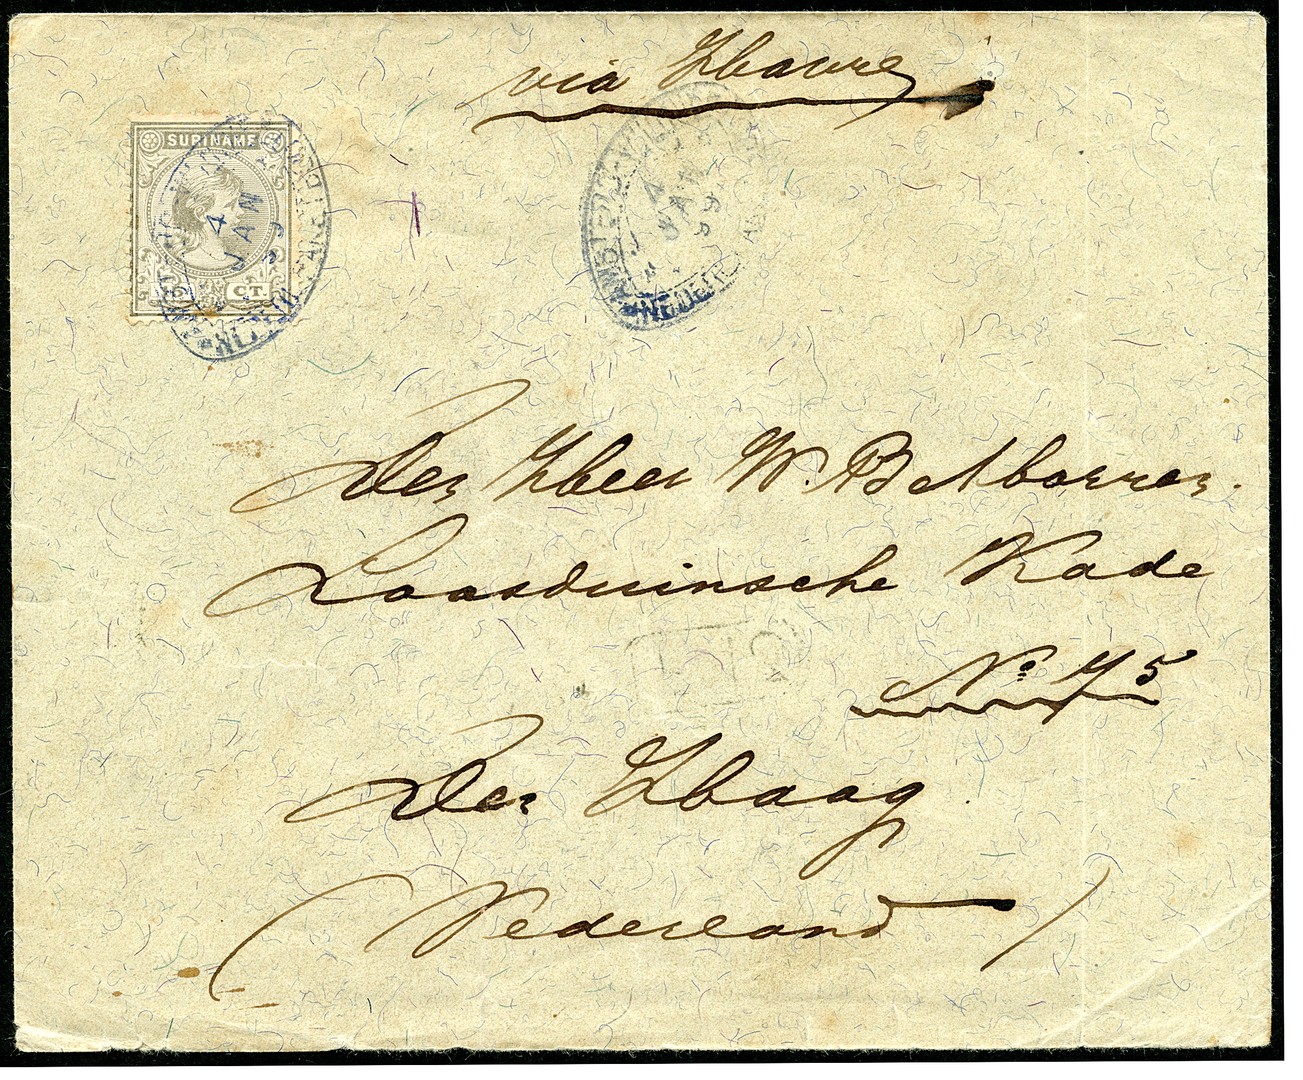 via Havre
SURINAME
4
JAN
99
CT.
4
JAN
99
NEDERL
Den Heer W. B
Loosduinsche Kade
No 75
Den Haag
(Nederland)